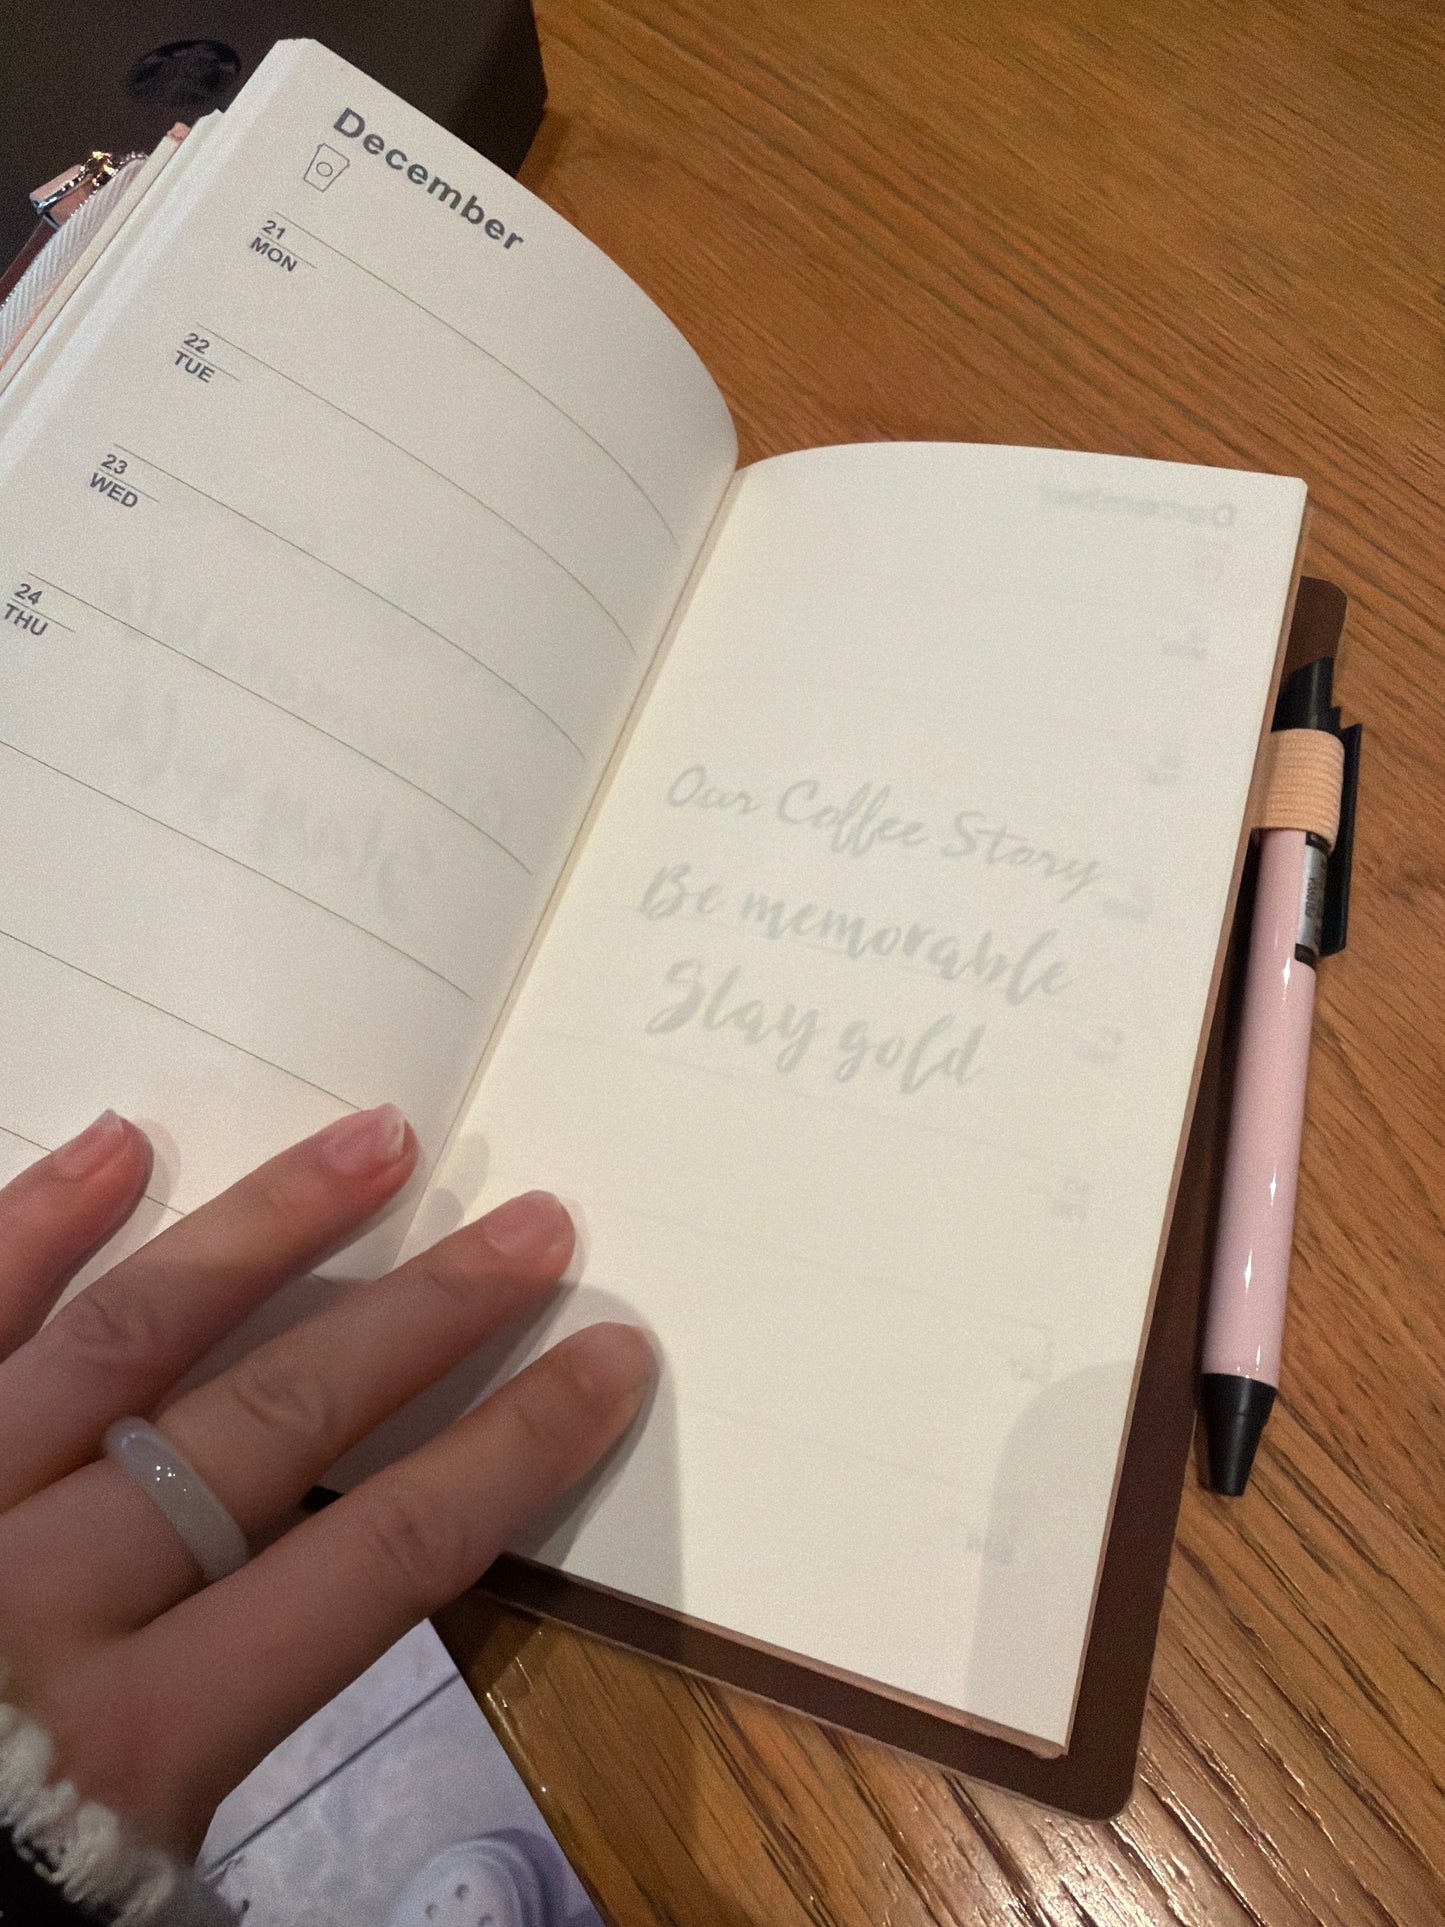 December
21
MON
22
TUE
23
WED
24
THU
Our Coffee Story
Be memorable
Stay gold